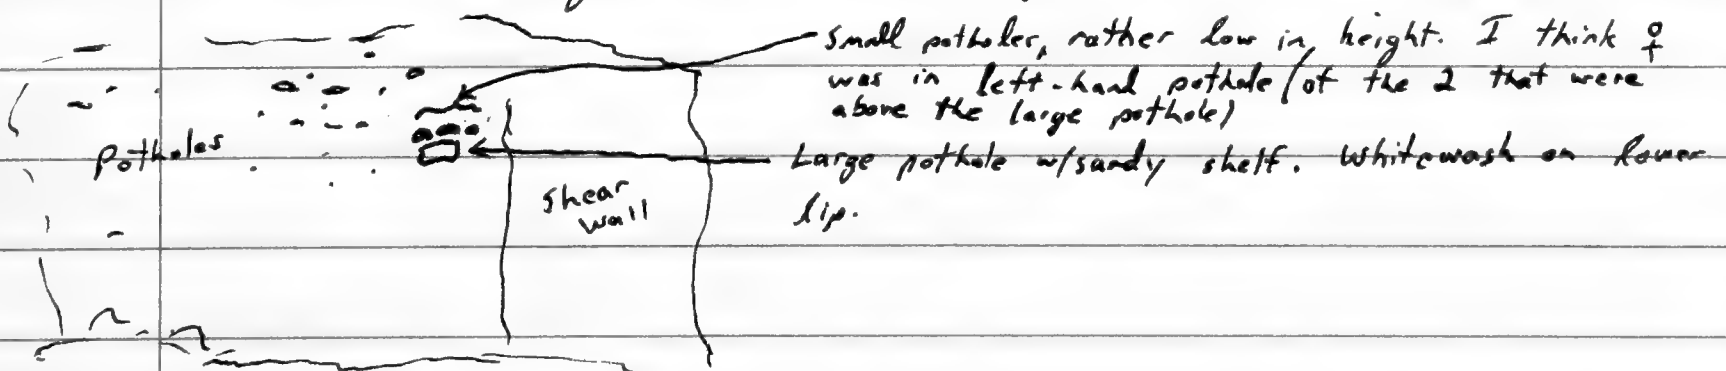 small potholes, rather low in height. I think ♀
was in left-hand pothole (of the 2 that were
above the large pothole)
potholes
Large pothole w/sandy shelf. Whitewash on lower
lip.
shear
wall